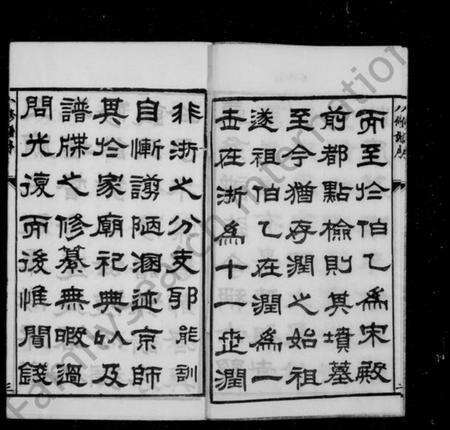 而至於伯乙為宋殿
前都點檢則其墳墓
至今猶存潤之始祖
遂祖伯乙在潤為一
世在浙為十一世潤
非浙之分支耶能訓
自慚譾陋溷迹京師
其於家廟祀典以及
譜牒之修纂無暇過
問光復而後惟聞錢
FamilySearch International